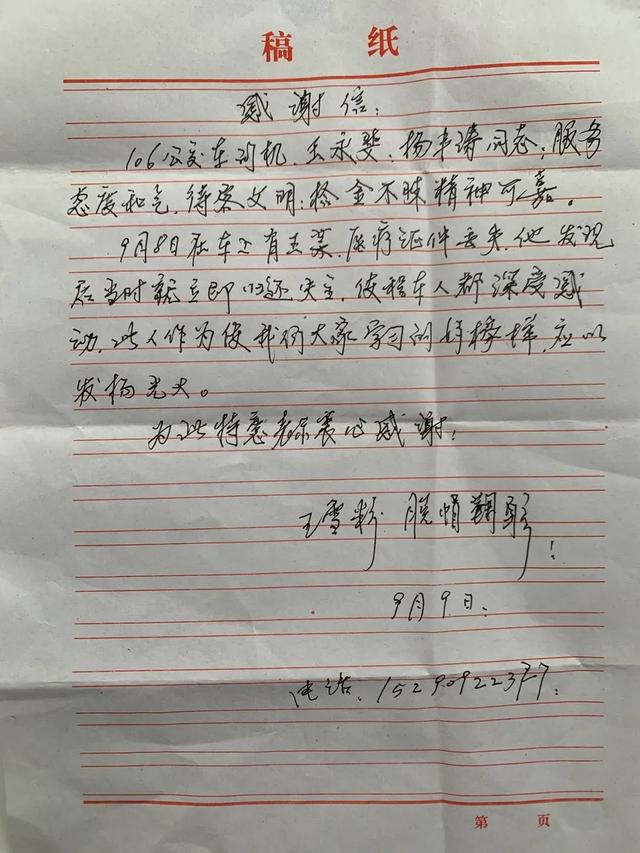 稿 纸
感谢信:
106公交车司机,王永斐,杨丰涛同志:服务
态度和气,待客文明;拾金不昧精神可嘉。
9月8日在车上有王某,医疗证件丢失,他发现
后当时就立即归还失主,使程车人都深受感
动,此人作为使我们大家学习的好榜样,应以
发扬光大。
为此特意表示衷心感谢!
王雪粉 脱帽鞠躬!
9月9日.
电话.152909223
第 页